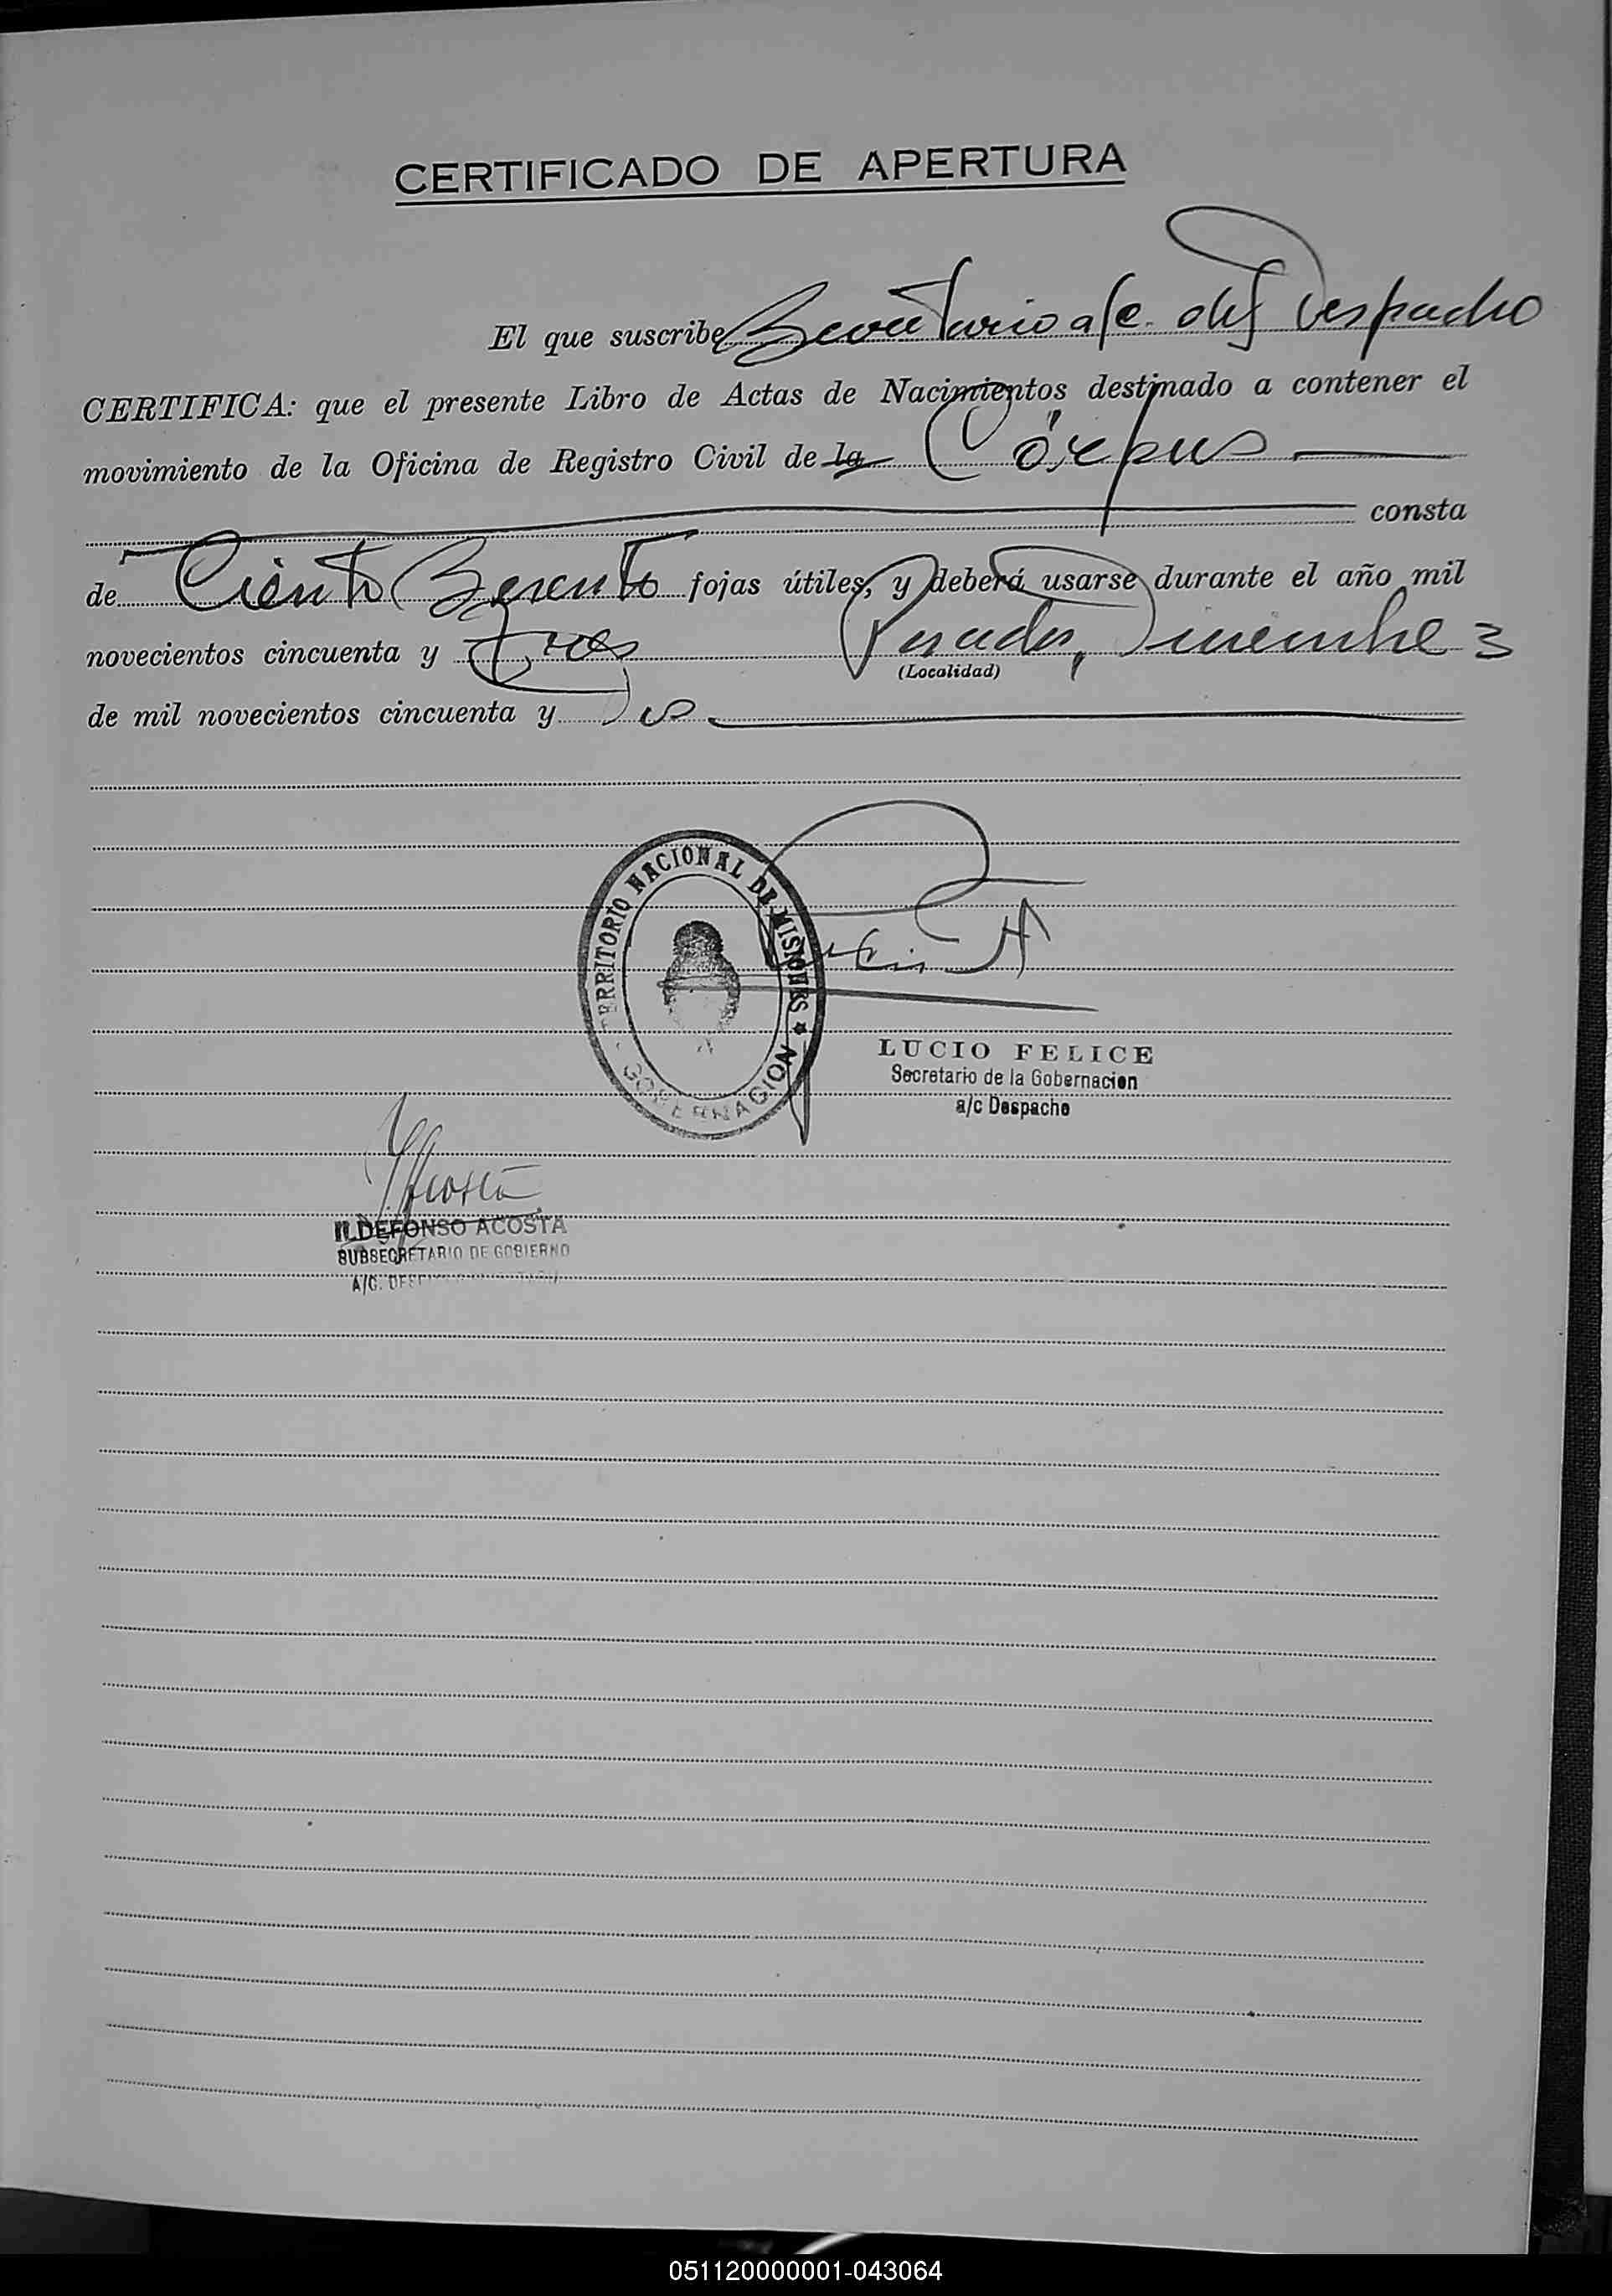 CERTIFICADO DE APERTURA
El que suscribe Secretario a/c. del Despacho
CERTIFICA: que el presente Libro de Actas de Nacimientos destinado a contener el
movimiento de la Oficina de Registro Civil de la "Corpus
consta
de Ciento Sesenta fojas útiles, y deberá usarse durante el año mil
novecientos cincuenta y tres Posadas, Diciembre 3
(Localidad)
de mil novecientos cincuenta y Dos
TERRITORIO NACIONAL DE MISIONES
GOBERNACION
LUCIO FELICE
Secretario de la Gobernacion
a/c Despacho
Acosta
ILDEFONSO ACOSTA
SUBSECRETARIO DE GOBIERNO
A/C.
051120000001-043064